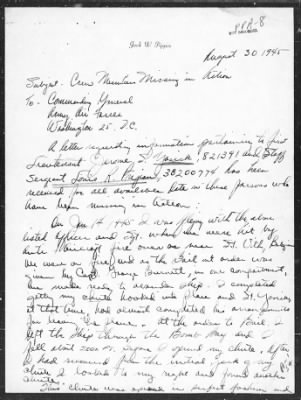 Jack W. Pogue
August 30 1945
Subject: Crew Members Missing in
Action
To: Commanding General
Army Air Forces
Washington 25 D.C.
A letter requesting information pertaining to first
Lieutenant Jerome, 821391 and Staff
Sergeant Louis K. 38200774 has been
received for all available data in these persons who
have been missing in Action:
On Jan 14 45 I was flying with the above
listed Officer and Sgt. when we were hit by
Anti Aircraft fire over or near St. Vith, Belgium
We were on fire and as the bail out order was
given by Capt. George Barnett, in our compartment,
we made ready to abandon ship. I completed
getting my chute hooked into place and Lt.
at that time had almost completed his
for leaving the plane. At the order to Bail I
left the ship through the Bomb Bay and I
fell about before I opened my chute. After
I had recovered from the initial of my
chute I looked to my right and found another
chute.
This chute was opened in perfect fashion and